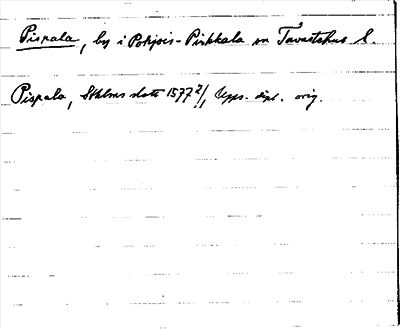 Pispala, by i Pohjois-Pirkkala sn Tavastehus l.
Pispala, Sthlms slott 1577 2/, Upps. dipl. orig.